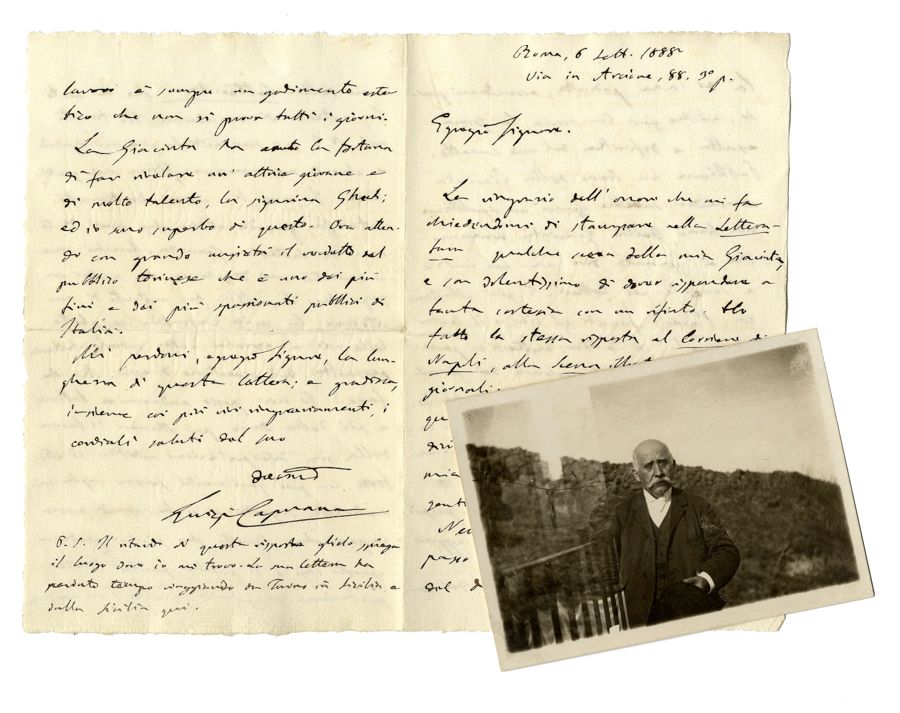 Roma, 6 Sett. 1888
Via in Arcione, 88, 3º p.
Egregio Signore.
La ringrazio dell'onore che mi fa
chiedendomi di stampare nella Lettera-
tura qualche scena della mia Giacinta,
e son dolentissimo di dover rispondere a
tanta cortesia con un rifiuto. Ho
fatto la stessa risposta al Corriere di
Napoli, alla Scena
giornali.
passo
del
lavori è sempre un godimento este-
tico che non si prova tutti i giorni.
La Giacinta ha avuto la fortuna
di far rivelare un'attrice giovane e
di molto talento, la signorina
ed io sono superbo di questo. Ora atten-
do con grande ansietà il verdetto del
pubblico torinese che è uno dei più
fini e dei più spassionati pubblici di
Italia.
Mi perdoni, egregio Signore, la lun-
ghezza di questa lettera; e gradisca,
insieme coi più vivi ringraziamenti, i
cordiali saluti del suo
Luigi Capuana
P. S. Il ritardo di questa risposta glielo spiega
il luogo dove io mi trovo. La sua lettera ha
perduto tempo viaggiando da Torino in Sicilia e
dalla Sicilia qui.